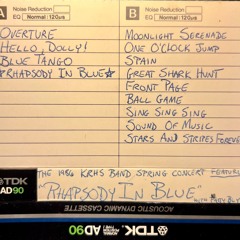 A
Noise Reduction
EQ Normal: 120μs
OVERTURE
HELLO, DOLLY!
BLUE TANGO
☆RHAPSODY IN BLUE☆
B
Noise Reduction
EQ Normal: 120μs
MOONLIGHT SERENADE
ONE O'CLOCK JUMP
SPAIN
GREAT SHARK HUNT
FRONT PAGE
BALL GAME
SING SING SING
SOUND OF MUSIC
STARS AND STRIPES FOREVER
THE 1986 KRHS BAND SPRING CONCERT
"RHAPSODY IN BLUE"
WITH
TDK
AD90
ACOUSTIC DYNAMIC CASSETTE
TDK. AD90